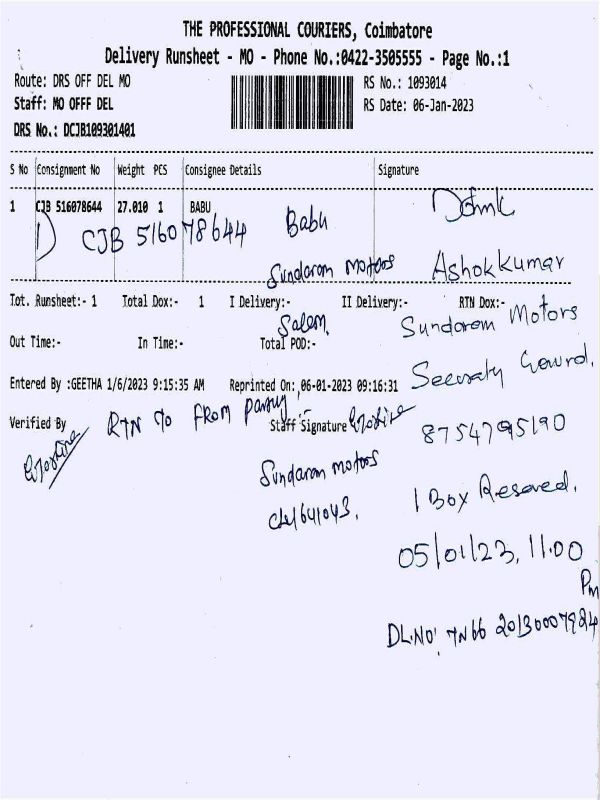 THE PROFESSIONAL COURIERS, Coimbatore
Delivery Runsheet - MO - Phone No.:0422-3505555 - Page No.:1
Route: DRS OFF DEL MO
RS No.: 1093014
Staff: MO OFFF DEL
RS Date: 06-Jan-2023
DRS No.: DCJB109301401
S No Consignment No Weight PCS Consignee Details Signature
1 CJB 516078644 27.010 1 BABU
1) CJB 516078644 Babu
Sundaram Motors
Salem.
Ashokkumar
Tot. Runsheet:- 1 Total Dox:- 1 I Delivery:- II Delivery:- RTN Dox:-
Sundaram Motors
Out Time:- In Time:- Total POD:-
Securaty Gowrd.
Entered By :GEETHA 1/6/2023 9:15:35 AM Reprinted On: 06-01-2023 09:16:31
Verified By
RTN TO FROM Party
Staff Signature
8754795190
Sundaram motors
641043.
1 Box Reseved.
05/01/23, 11.00
Pm
DL.NO: TN66 20130007924